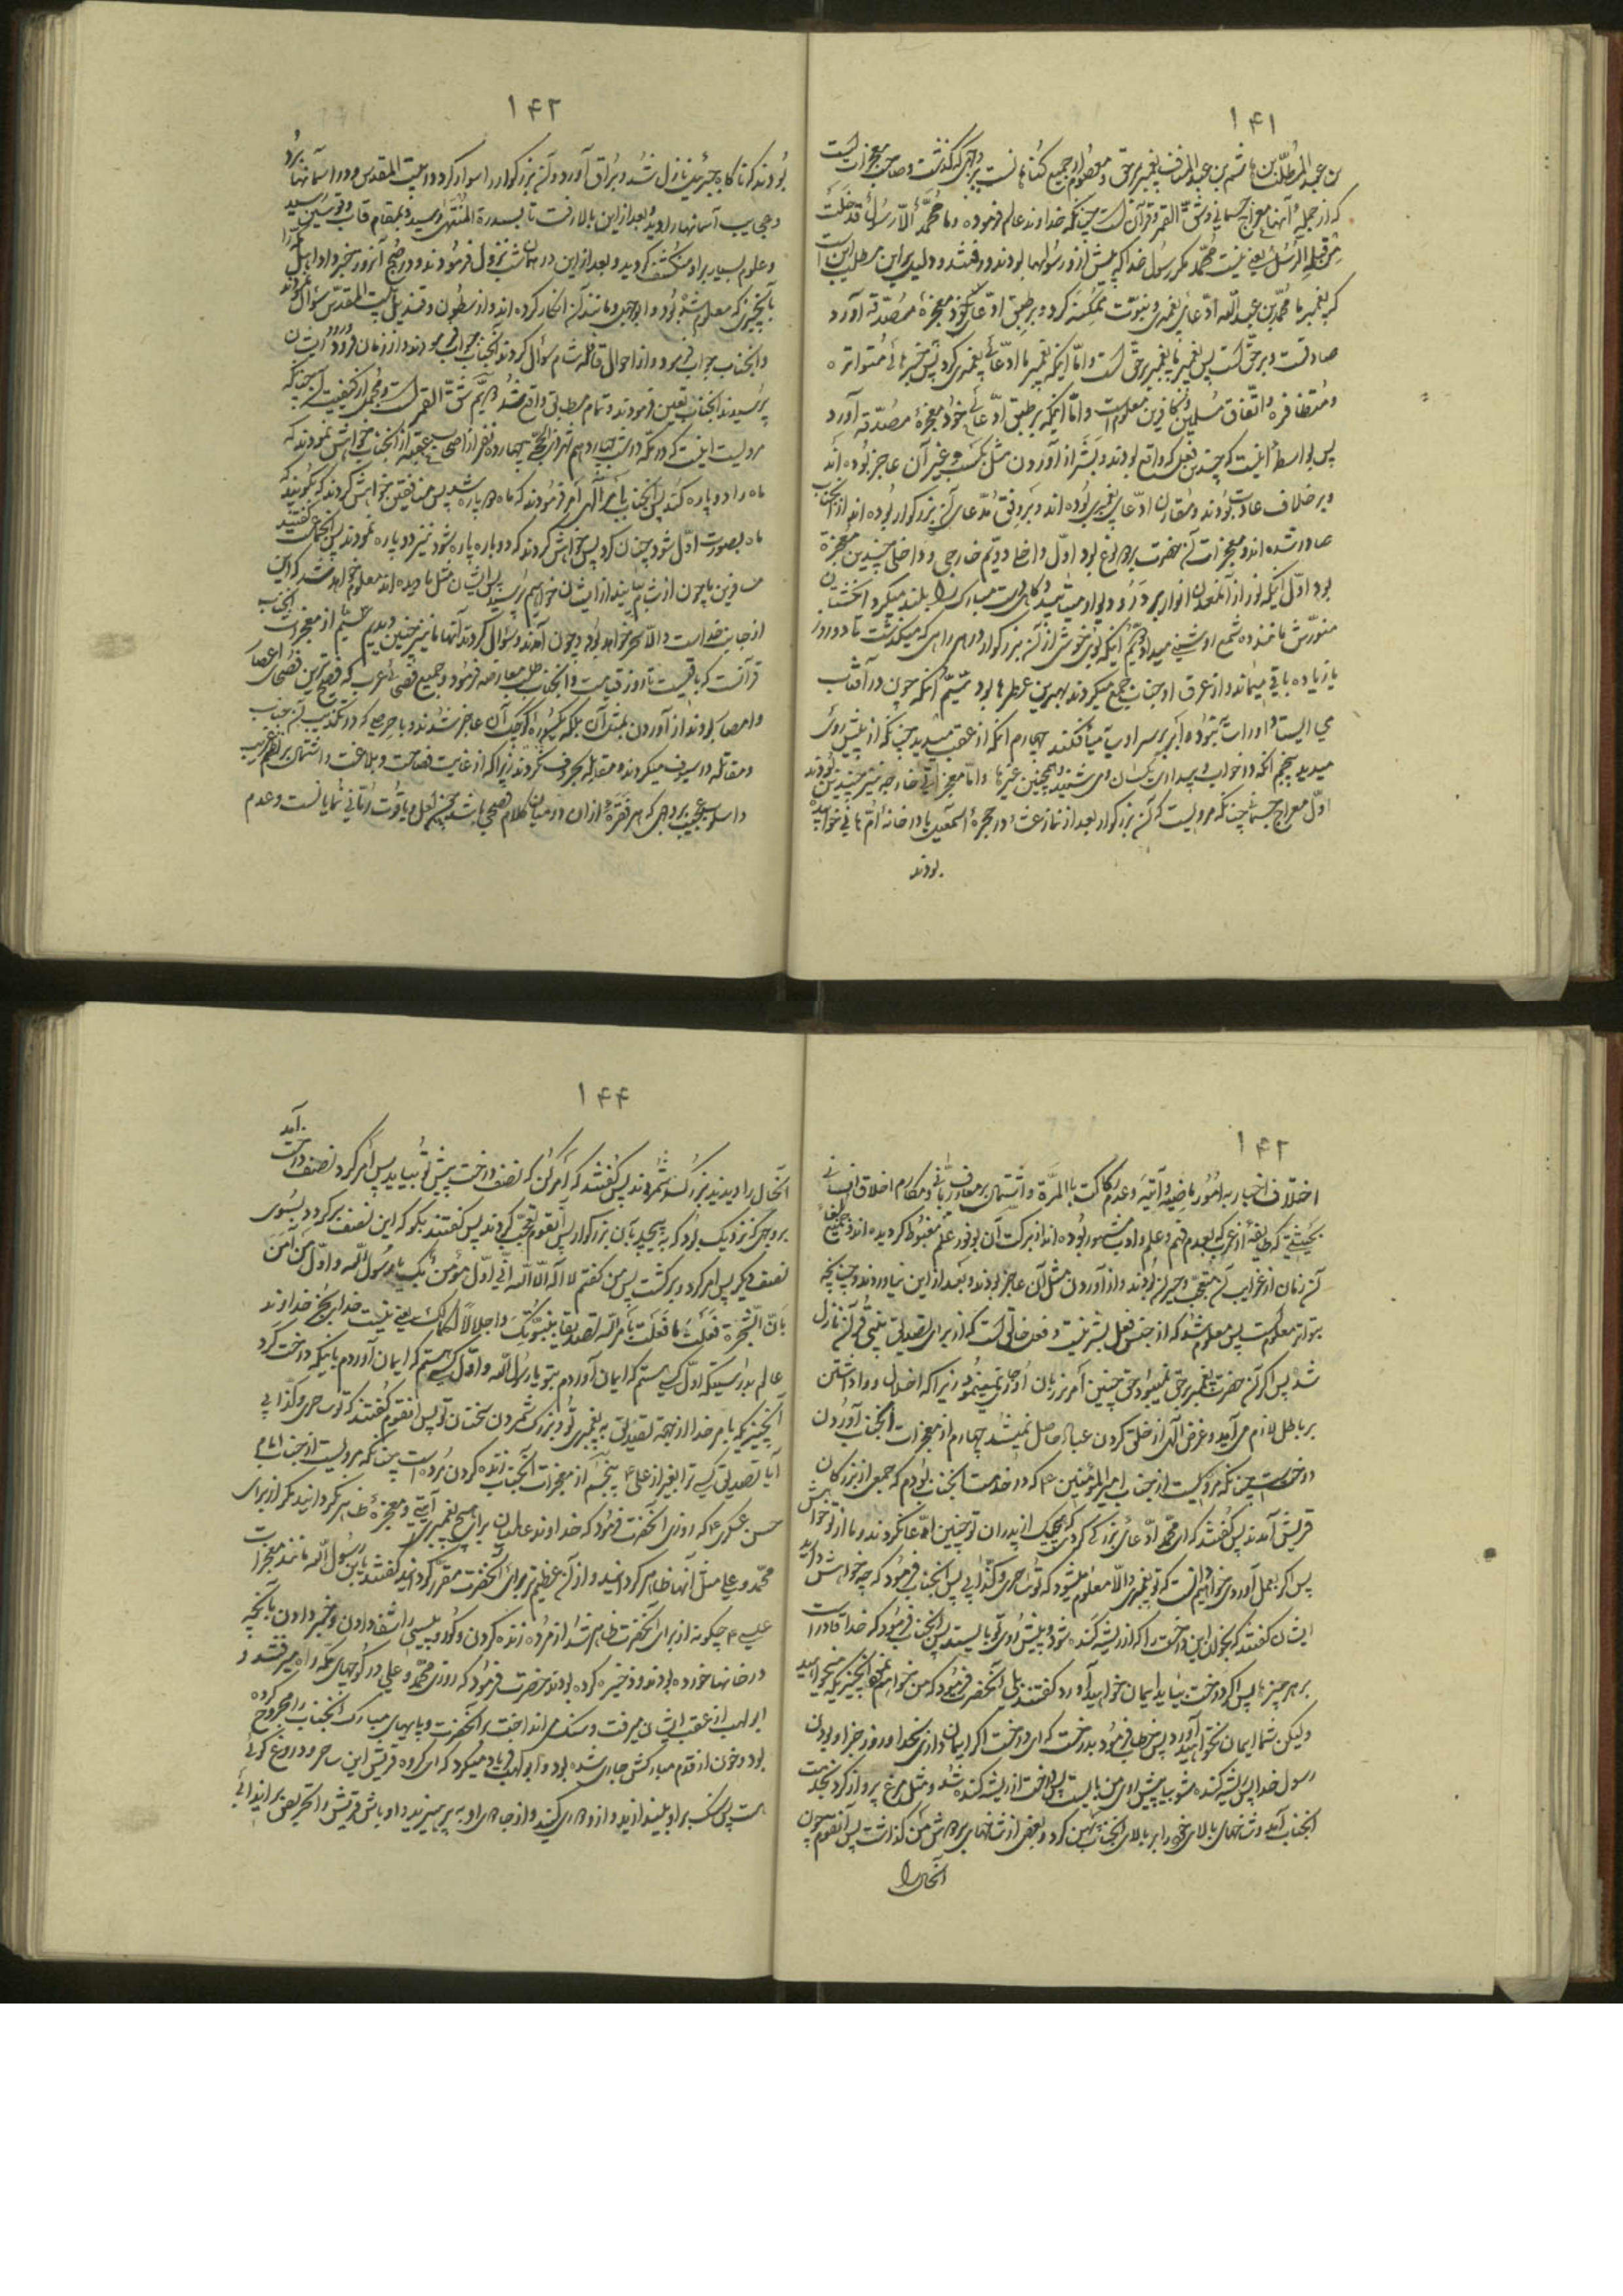 ۱۴۱
بن عبد المطلب بن هاشم بن عبد المناف پیغمبر بر حق و معصوم از جمیع گناهانست بر وجهی که گذشت و صاحب معجزات است
که از جمله آنها معراج جسمانی و شق القمر و قرآن است چنانکه خداوند عالم فرموده و ما محمد الا رسول قد خلت
من قبله الرسل یعنی نیست محمد مگر رسول خدا که پیش از او رسولها بودند و رفتند و دلیل بر این مطلب این است
که پیغمبر ما محمد بن عبد الله ادعای پیغمبری و نبوت ممکنه کرد و بر طبق ادعای خود معجزه مصدقه آورد
صادقست و بر حق است پس پیغمبر ما پیغمبر بر حق است و اما اینکه پیغمبر ما ادعای پیغمبری کرد پس خبرهای متواتره
و متظافره و اتفاق مسلمین و کافرین معلوم است و اما اینکه بر طبق ادعای خود معجزه مصدقه آورد
پس بواسطه اینست که چندین فعل که واقع بودند و بشر از آوردن مثل یکسب و غیر آن عاجز بوده اند
و بر خلاف عادت بودند و مقارن ادعای پیغمبری بوده اند و بر وفق مدعای آن بزرگوار بوده اند از آنجناب
صادر شده اند و معجزات آن حضرت بر دو نوع بود اول داخلی دویم خارجی و داخلی چندین معجزه
بود اول اینکه نور از آنمعدن انوار بر در و دیوار میتابید و گاهی دست مبارک را بلند میکرد انگشتان
منورش مانند ده شمع روشنی میداد دویم اینکه بوی خوشی از آن بزرگوار در هر راهی که میگذشت تا دو روز
یا زیاده باقی میماند و از عرق او جناب جمع میکردند بهترین عطرها بود سیم آنکه چون در آفتاب
می ایستاد او را سایه نبود و ابر بر سر او سایه میافکند چهارم آنکه از عقب میدید چنانکه از پیش روی
میدید پنجم آنکه در خواب و بیداری یکسان می شنید و همچنین غیر ها و اما معجزات خارجه نیز چندین بودند
اول معراج جسمانی چنانکه مرویست که آن بزرگوار بعد از نماز عشا در حجره اسمعیل یا در خانه ام هانی خوابیده
بودند
۱۴۲
بودند که ناگاه جبرئیل نازل شد و براق آورد و آن بزرگوار را سوار کرد و در بیت المقدس و در آسمانها برد
و عجایب آسمانها را دید و بعد از این بالا رفت تا بسدرة المنتهی رسید و بمقام قاب و قوسین رسید
و علوم بسیار بر او منکشف گردید و بعد از این در همان شب نزول فرمودند و در صبح آنروز خبر داد اهل مکه را
بآنچیزی که معلوم شده بود و ابوجهل و مانند آن انکار کرده اند و از ستون و قندیل بیت المقدس سؤال کردند
و آنجناب جواب فرمود و از احوال قافله شام سؤال کردند آنجناب جواب فرمودند و از زمان ورود ایشان
پرسیدند آنجناب تعیین فرمودند و تمام مطابق واقع شد دویم شق القمر است و مجملی از کیفیت آن چنانکه
مرویست اینست که در مکه در شب چهاردهم شهر ذی الحجه چهارده نفر از اصحاب عقبه از آنجناب خواهش نمودند که
ماه را دو پاره کند پس آنجناب بامر الهی امر فرمودند که ماه دو پاره شد پس منافقین خواهش کردند که بگویند که
ماه بصورت اول شود چنان کرد پس خواهش کردند که دوباره پاره شود نیز دو پاره نمودند پس آنجماعت گفتند
مسافرین ما چون از شام بیایند از ایشان خواهیم پرسید پس اگر ایشان مثل ما دیده اند معلوم خواهد شد که این
از جانب خداست و الا سحر خواهد بود و چون آمدند و سؤال کردند آنها ما نیز چنین دیدیم سیم از معجزات آنجناب
قرآنست که باقیست تا روز قیامت و آنجناب طلب معارضه فرمود و جمیع فصحای عرب که فصیح ترین فصحای اعصار
و امصار بودند از آوردن بمثل آن بلکه بسوره کوچک آن عاجز شدند و با حرصی که در تکذیب آن جناب
و مقاتله در سیوف میکردند و مقابله بحروف نکردند زیرا که از غایت فصاحت و بلاغت و اشتمال بر نظم غریب
و اسلوب عجیب بر وجهی که هر فقره از آن در میان کلام فصحی باشد چون لعل و یاقوت رمانی نمایانست و عدم
۱۴۳
اختلاف اخبار به امور ماضیه و آتیه و عدم رکاکت بالمرة و اشتمال بر معارف ربانی و مکارم اخلاق انسانی
بحیثیتی که طایفه از عرب که بعدم فهم و علم و ادب مشهور بوده اند از برکت آن بوفور علم مغبوط گردیده اند و جمیع بلغاء
آن زمان از غرایب آن متعجب و حیران بودند و از آوردن مثل آن عاجز بودند و بعد از این نیاوردند چنانچه
بتواتر معلوم است پس معلوم شد که از جنس فعل بشر نیست و فعل خالق است که از برای تصدیق نبی قرآن نازل
شد پس اگر آن حضرت پیغمبر بر حق نمیبود حق چنین امر بر زبان او جاری نمینمود زیرا که اضلال و واداشتن
بر باطل لازم می آید و غرض الهی از خلق کردن عباد حاصل نمیشد چهارم از معجزات آنجناب آوردن
درخت است چنانکه مرویست از جناب امیر المؤمنین ۴ که در خدمت آنجناب بودم که جمعی از بزرگان
قریش آمدند پس گفتند که ای محمد ادعای بزرگی کردی که هیچیک از پدران تو چنین ادعا نکردند و ما از تو خواهش
پس اگر بعمل آوردی خواهیم دانست که تو پیغمبری والا معلوم میشود که تو ساحری و کذابی پس آنجناب فرمود که چه خواهش دارید
ایشان گفتند که بخوان این درخت را که از ریشه کنده شود و پیش روی تو بایستد پس آنجناب فرمود که خدا قادر است
بر هر چیز ها پس اگر درخت بیاید ایمان خواهید آورد گفتند بلی آنحضرت فرمود که من خواهم نمود آنچیزیکه میخواهید
ولیکن شما ایمان نخواهید آورد پس خطاب فرمود بدرخت که ای درخت اگر ایمان داری بخدا و روز جزا و بودن
رسول خدا پس ریشه کنده شو بیا پیش روی من بایست پس درخت از ریشه کنده شد و مثل مرغ پرواز کرد بخدمت
آنجناب آمد و شاخهای بالای خود را بر بالای آنجناب پهن کرد و بعضی از شاخهای بر دوش من گذاشت پس آنقوم چون
آنحال را
۱۴۴
آنحال را دیدند بزرگ شمردند پس گفتند که امر کن که نصف درخت پیش تو بیاید پس امر کرد نصف درخت آمد
بر وجهی که نزدیک بود که به پیچد بآن بزرگوار پس آنقوم تعجب کردند پس گفتند بگو که این نصف برگردد بسوی
نصف دیگر پس امر کرد و برگشت پس من گفتم لا اله الا الله انی اول مؤمن بک یا رسول الله و اول من امن
بان الشجرة فعلت ما فعلت بامر الله تصدیقا بنبوتک و اجلالا لکلمتک یعنی نیست خدا بجز خداوند
عالم بدرستیکه اول کسی هستم که ایمان آوردم بتو یا رسول الله و اول کسی هستم که ایمان آوردم باینکه درخت کرد
آنچیزیکه بامر خدا از جهة تصدیق به پیغمبری تو و بزرگ شمردن سخنان تو پس آنقوم گفتند که تو ساحری و کذابی
آیا تصدیق کسی ترا بغیر از علی ۴ پنجم از معجزات آنجناب زنده کردن مرده است چنانکه مرویست از جناب امام
حسن عسکری ۴ که روزی آنحضرت فرمود که خداوند عالمیان برای هیچ پیغمبری آیتی و معجزه ظاهر نگردانید مگر از برای
محمد و علی مثل آنها ظاهر گردانید و از آن عظیم تر برای آنحضرت مقرر گردانید گفتند یابن رسول الله مانند معجزات
عیسی ۴ چگونه از برای آنحضرت ظاهر شد از مرده زنده کردن و کور و پیسی را شفا دادن و خبر دادن بآنچه
در خانها خورده بودند و ذخیره کرده بودند حضرت فرمود که روزی محمد و علی در کوچهای مکه راه میرفتند و
ابو لهب از عقب ایشان میرفت و سنگ می انداخت بر آنحضرت و پایهای مبارک آنجناب را مجروح کرده
بود و خون از قدم مبارکش جاری شده بود و ابو لهب فریاد میکرد که ای گروه قریش این ساحر و دروغ گوئی
است پس سنگ بر او بیندازید و از او دوری کنید و از جادوی او به پرهیزید و اوباش قریش را تحریص بر ایذائی